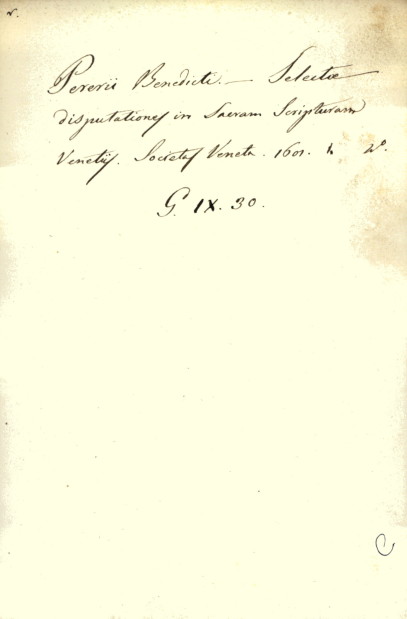 v.
Pererii Benedicti. — Selectæ
disputationes in Sacram Scripturam
Venetijs. Societas Veneta. 1601. h 2º.
G. IX. 30.
C